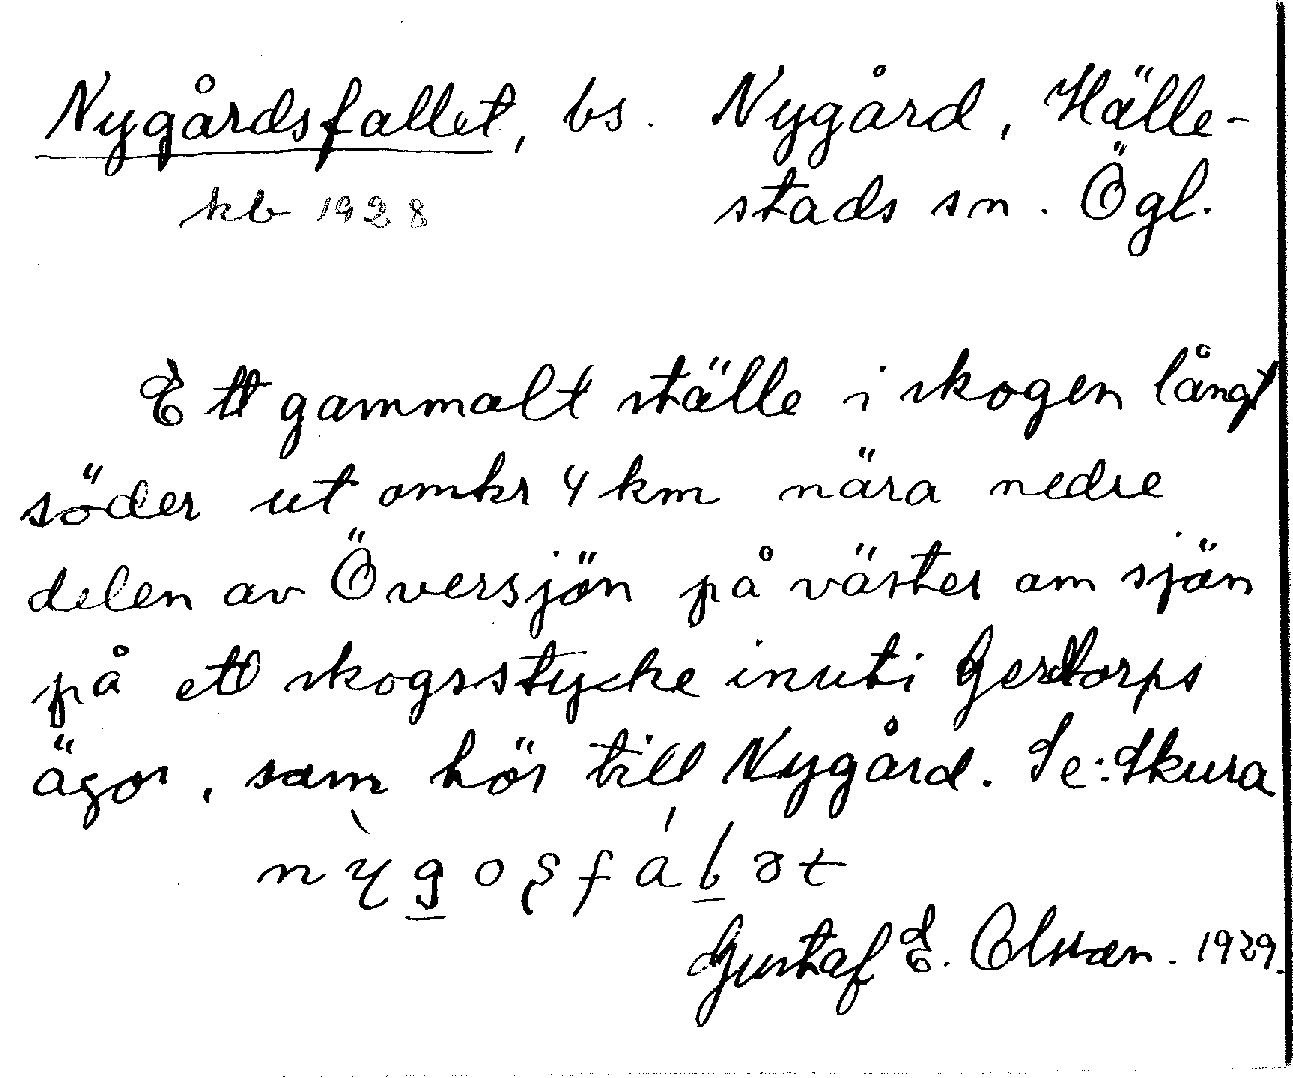 Nygårdsfallet, bs. Nygård, Hälle-
kb 1928 stads sn. Ögl.
Ett gammalt ställe i skogen långt
söder ut omkr 4 km nära nedre
delen av Översjön på väster om sjön
på ett skogsstycke inuti Gerstorps
ägor, som hör till Nygård. Se: Skura
Gustaf E. Olsson. 1929.